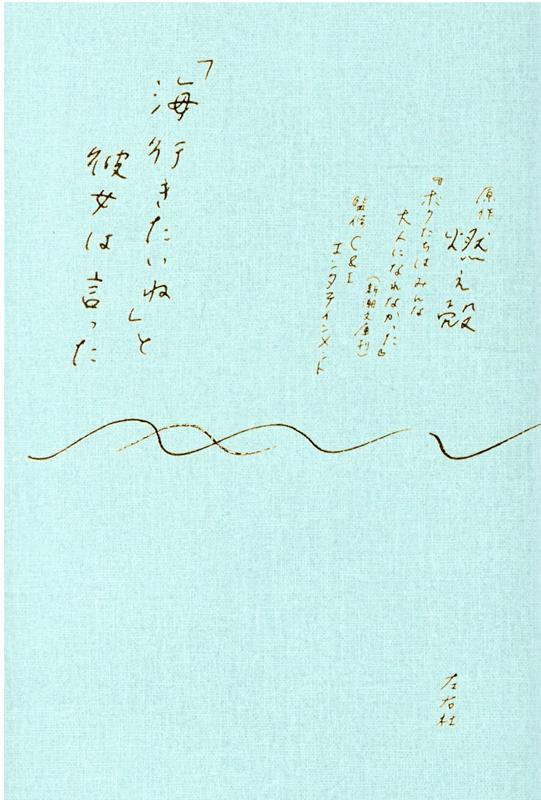 「海行きたいね」と
彼女は言った
原作 燃え殻
『ボクたちはみんな
大人になれなかった』
(新潮文庫刊)
監修 C&I
エンタテインメント
左右社